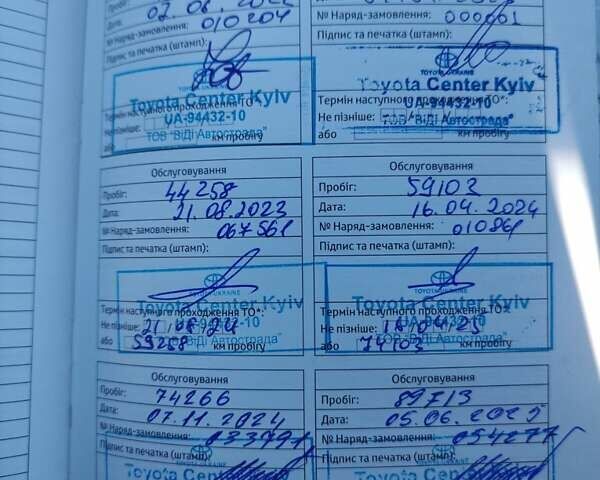 Дата: 02.06.2022
№ Наряд-замовлення: 010204
Підпис та печатка (штамп):
TOYOTA UKRAINE
Toyota Center Kyiv
UA-94432-10
ТОВ "ВіДі Автострада"
Термін наступного проходження ТО*:
Не пізніше:
або км пробігу
№ Наряд-замовлення: 000661
Підпис та печатка (штамп):
TOYOTA UKRAINE
Toyota Center Kyiv
UA-94432-10
ТОВ "ВіДі Автострада"
Термін наступного проходження ТО*:
Не пізніше:
або км пробігу
Обслуговування
Пробіг: 44258
Дата: 21.08.2023
№ Наряд-замовлення: 067561
Підпис та печатка (штамп):
TOYOTA UKRAINE
Toyota Center Kyiv
UA-94432-10
ТОВ "ВіДі Автострада"
Термін наступного проходження ТО*:
Не пізніше: 21/08/24
або 59258 км пробігу
Обслуговування
Пробіг: 59102
Дата: 16.04.2024
№ Наряд-замовлення: 010861
Підпис та печатка (штамп):
TOYOTA UKRAINE
Toyota Center Kyiv
UA-94432-10
ТОВ "ВіДі Автострада"
Термін наступного проходження ТО*:
Не пізніше: 16/04/25
або 74103 км пробігу
Обслуговування
Пробіг: 74266
Дата: 07.11.2024
№ Наряд-замовлення: 033791
Підпис та печатка (штамп):
TOYOTA UKRAINE
Toyota Center Kyiv
Обслуговування
Пробіг: 89713
Дата: 05.06.2025
№ Наряд-замовлення: 054277
Підпис та печатка (штамп):
TOYOTA UKRAINE
Toyota Center Kyiv